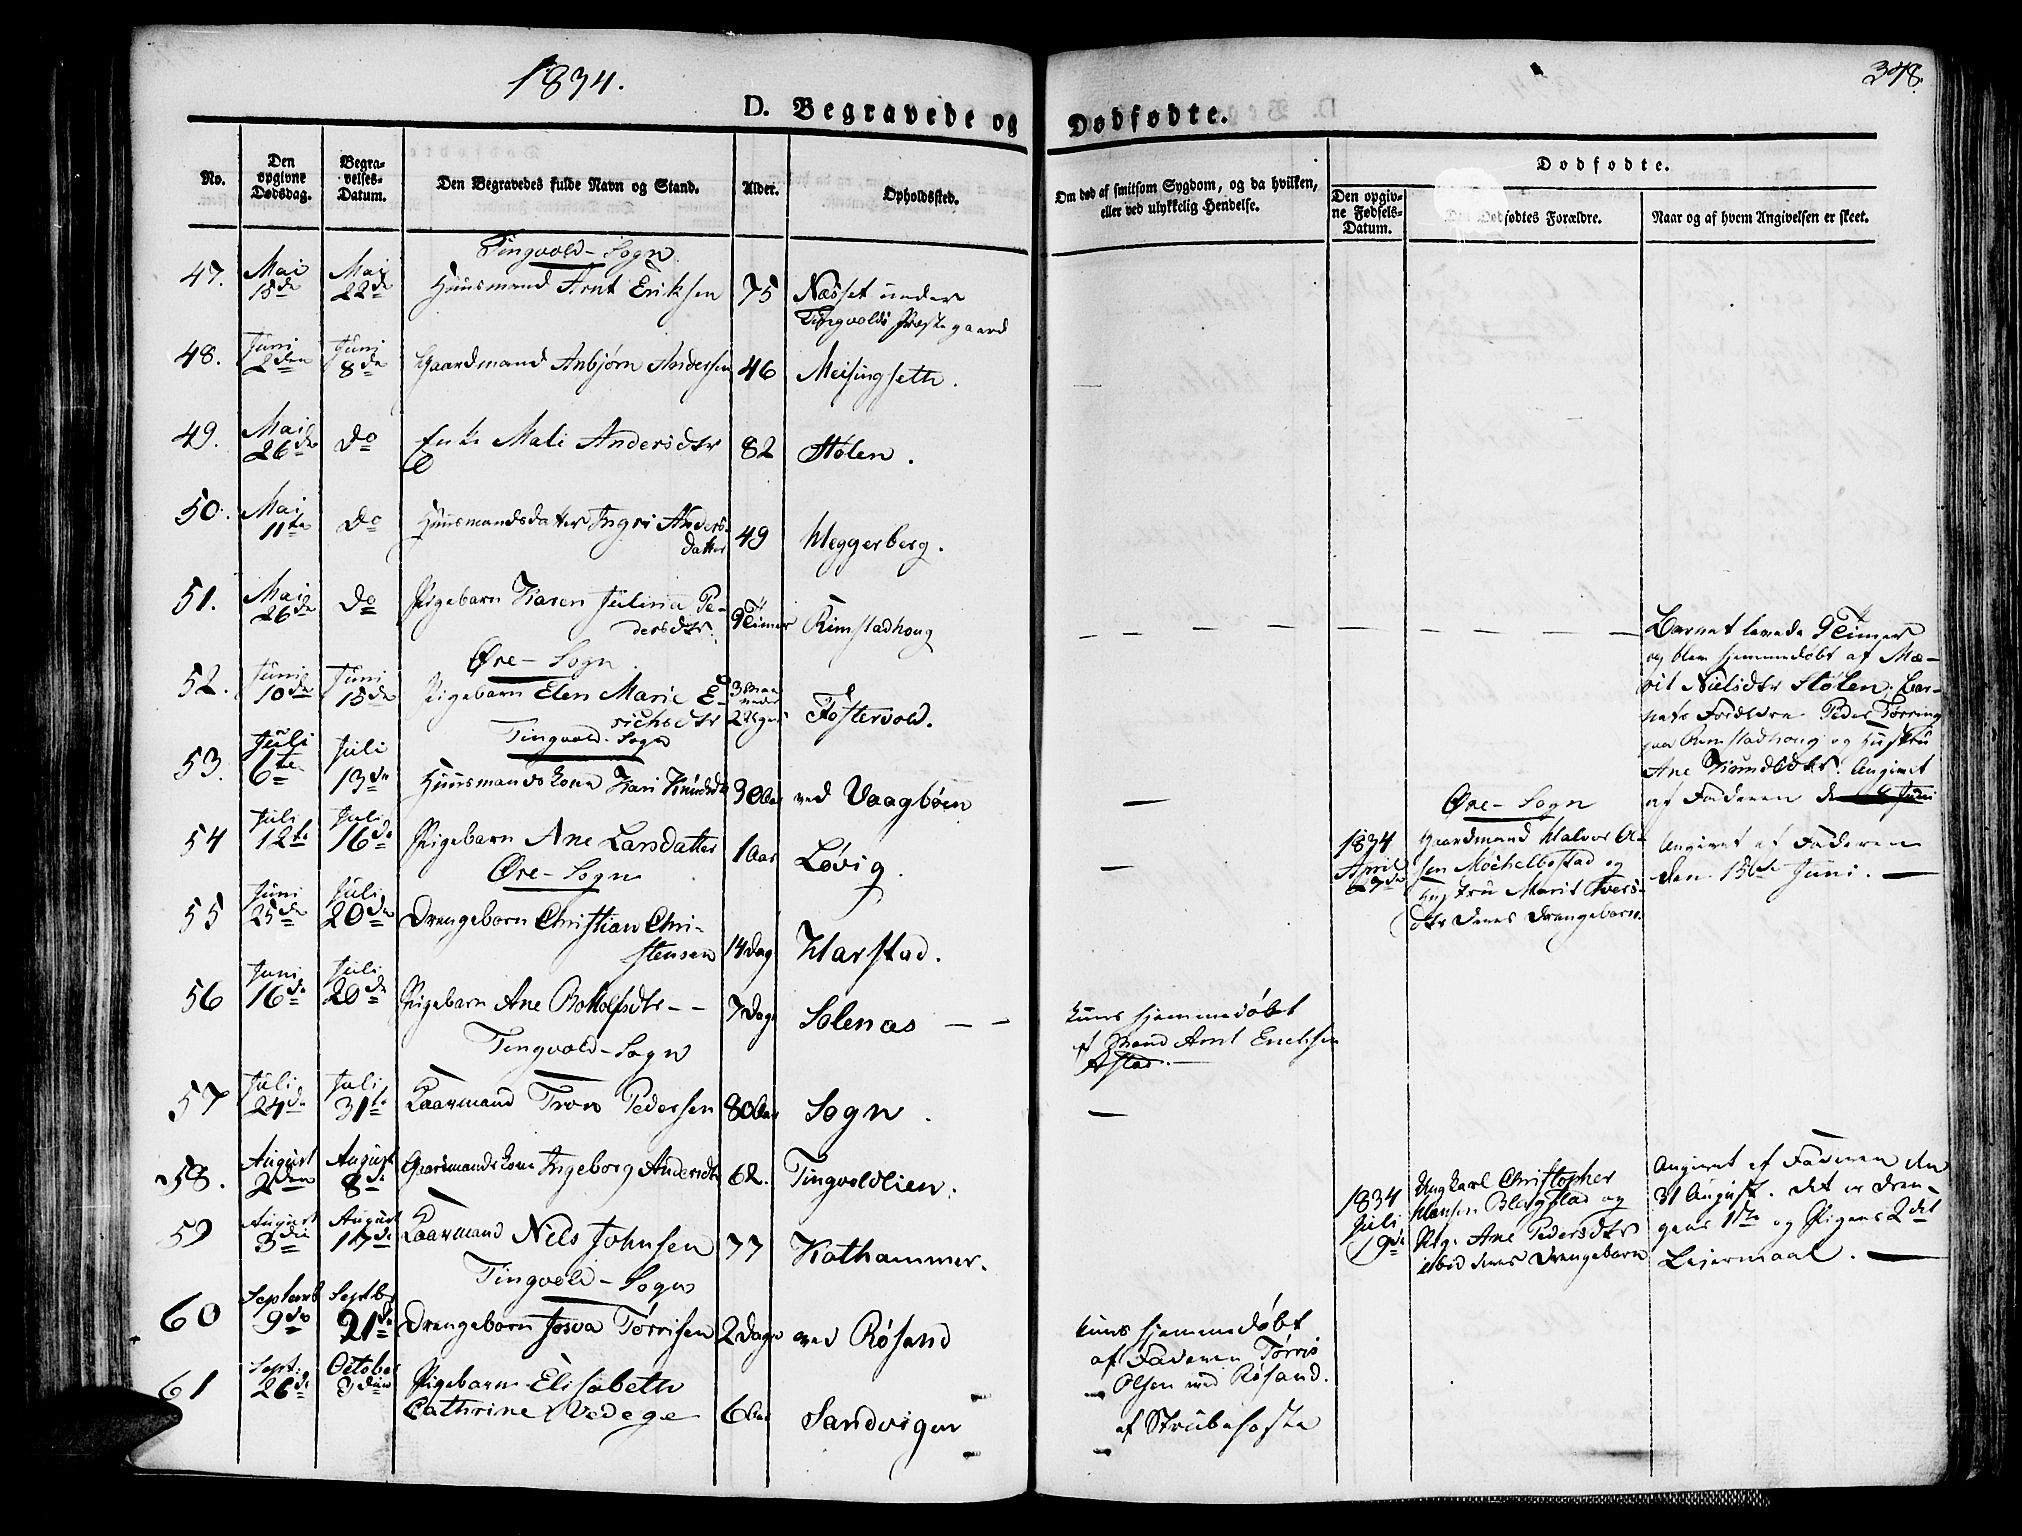 1834.
348.
D. Begravede og Dødfødte.
No.
Den opgivne Dødsdag.
Begravelses-Datum.
Den Begravedes fulde Navn og Stand.
Alder.
Opholdssted.
Om død af smitsom Sygdom, og da hvilken,
eller ved ulykkelig Hendelse.
Dødfødte.
Den opgivne Fødsels-Datum.
Den Dødfødtes Forældre.
Naar og af hvem Angivelsen er skeet.
Tingvold-Sogn.
47. Mai 15de Mai 22de Huusmand Arnt Eriksen 75 Næsset under
Tingvolds Præstegaard
48. Juni 2den Juni 8de Gaardmand Anbjørn Andersen 46 Meisingseth.
49. Mai 26de Do Enke Mali Andersdtr 82 Holen.
50. Mai 11te Do Huusmandsdatter Ingri Anders-
datter 49 Meggerberg.
51. Mai 26de Do Pigebarn Karen Julina Pe-
dersdtr. 9 Timer Rimstadhoug
Øre-Sogn.
52. Juni 10de Juni 15de Pigebarn Elen Marie E-
richsdtr 3 Maaneder 2 Uger Fostervold.
Tingvold-Sogn
53. Juli 6te Juli 13de Huusmandskone Kari Knudsdtr 30 Aar ved Vaagbøen
54 Juli 12te Juli 16de Pigebarn Ane Larsdatter 1 Aar Løvig.
Øre-Sogn
55 Juni 25de Juli 20de Drengebarn Christian Chri-
stensen 14 Dage Harstad.
56 Juni 16de Juli 20de Pigebarn Ane Botholfsdtr -- 7 Dage Solenas --
Tingvold-Sogn
57 Juli 24de Juli 31te Gaarmand Tron Pedersen 80 Aar Sogn.
58. August 2den August 8de Gaardmandskone Ingeborg Andersdtr 62. Tingvoldlien.
59 August 3die August 17de Gaarmand Nils Johnsen 77 Kathammer.
Tingvold-Sogn
60 Septemb 9de Septbr 21de Drengebarn Josva Tørrisen 2 Dage ved Røsand
61 Sept. 26de October 3die Pigebarn Elisabeth
Cathrine Wedege 6 Aar Sandvigen
kuns hjemmedøbt
af Mand Arnt Erichsen
Astad.
kuns hjemmedøbt
af Faderen Tørris
Olsen ved Røsand.
af Strubehoste
Barnet levede 9 Timer
og blev hjemmedøbt af Ma-
rit Nielsdtr Holen. Bar-
nets Forældre Peder Tørring
paa Rimstadhoug og Hustru
Ane Knudsdtr. Angivet
af Faderen
Øre-Sogn
1834 April
Gaardmand Halvor O-
sen Mochelbostad og
Hustru Marit Ivers-
dtr deres Drengebarn.
Angivet af Faderen
den 15de Juni.
1834 Juli 19de
Ungkarl Christopher
Hansen Blegstad og
Pige Ane Pedersdtr
ibid deres Drengebarn
Angivet af Faderen den
31 August. Det er Dren-
gens 1ste og Pigens 2det
Leiermaal.